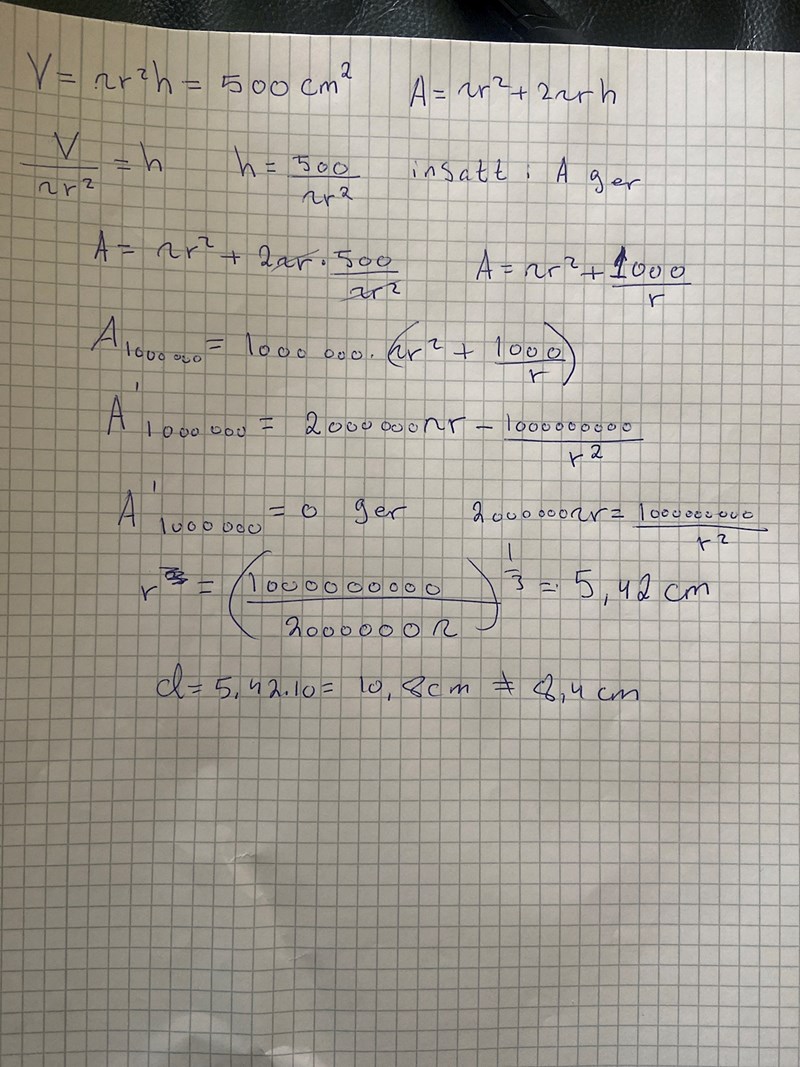 V = πr²h = 500 cm² A = πr² + 2πrh
V/πr² = h h = 500/πr² insatt i A ger
A = πr² + 2πr · 500/πr² A = πr² + 1000/r
A₁₀₀₀₀₀₀ = 1000 000 · (πr² + 1000/r)
A'₁₀₀₀₀₀₀ = 2000 000πr − 1000000000/r²
A'₁₀₀₀₀₀₀ = 0 ger 2000 000πr = 1000000000/r²
r = (1000000000/2000000π)^(1/3) = 5,42 cm
d = 5,42.10 = 10,8cm ≠ 8,4 cm